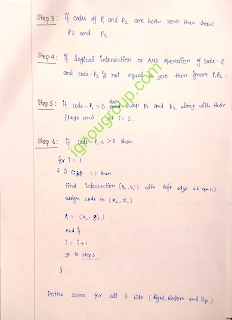 Step 3 : If codes of P1 and P2 are both zero then draw
P1 and P2.
Step 4: If logical intersection or AND operation of code-P1
and code-P2 is not equal to zero then
Step 5: If code-P1 = 0 then swap P1 and P2 along with their
flags and set i = 1.
Step 6: If code-P1 < > 0 then
for i = 1
then
find intersection with left edge
assign code to
P1 =
end if
i = i+1
go to step
}
Do the same for all 3 bits (Right, Bottom and Top)
ignougroup.com